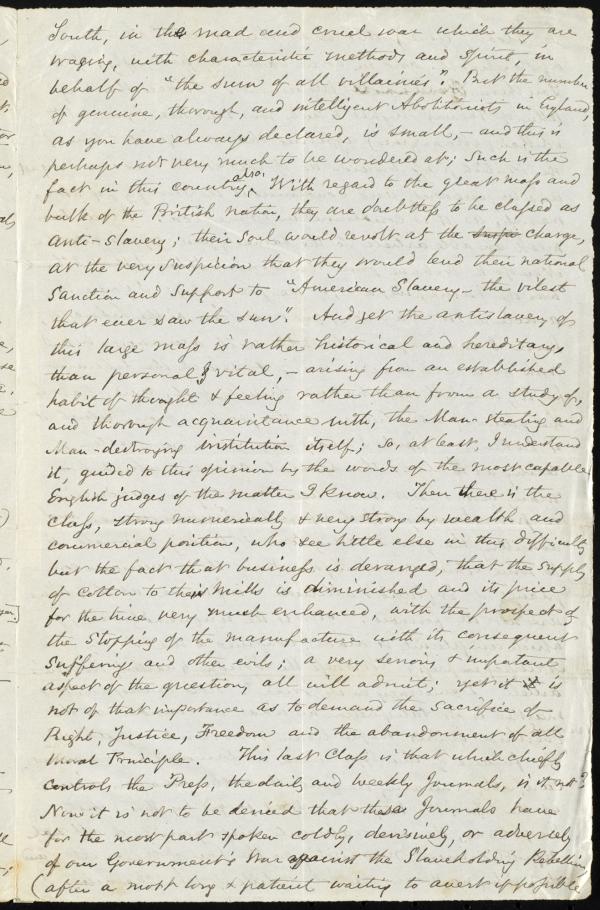 South, in the mad and cruel war which they are
waging, with characteristic methods and spirit, in
behalf of "the sum of all villainies". But the number
of genuine, thorough, and intelligent Abolitionists in England,
as you have always declared, is small, - and this is
perhaps not very much to be wondered at; Such is the
fact in this country also. With regard to the great mass and
bulk of the British nation, they are doubtless to be classed as
Anti-Slavery; their Soul would revolt at the charge,
at the very suspicion that they would lend their national
Sanction and Support to "American Slavery - the vilest
that ever saw the sun". And yet the antislavery of
this large mass is rather historical and hereditary,
than personal & vital, - arising from an established
habit of thought & feeling rather than from a study of,
and thorough acquaintance with, the Man-stealing and
Man-destroying institution itself; so, at least, I understand
it, guided to this opinion by the words of the most capable
English judges of the matter I know. Then there is the
Class, strong numerically & very strong by wealth and
commercial position, who see little else in this difficulty
but the fact that business is deranged, that the supply
of Cotton to their Mills is diminished and its price
for the time very much enhanced, with the prospect of
the stopping of the manufacture with its consequent
Sufferings and other evils; a very serious & important
aspect of the question, all will admit; yet it is
not of that importance as to demand the sacrifice of
Right, Justice, Freedom and the abandonment of all
Moral Principle. This last Class is that which chiefly
controls the Press, the daily and weekly Journals, is it not?
Now it is not to be denied that these Journals have
for the most part spoken coldly, derisively, or adversely
of our Government's War against the Slaveholding Rebellion
(after a most long & patient waiting to avert if possible